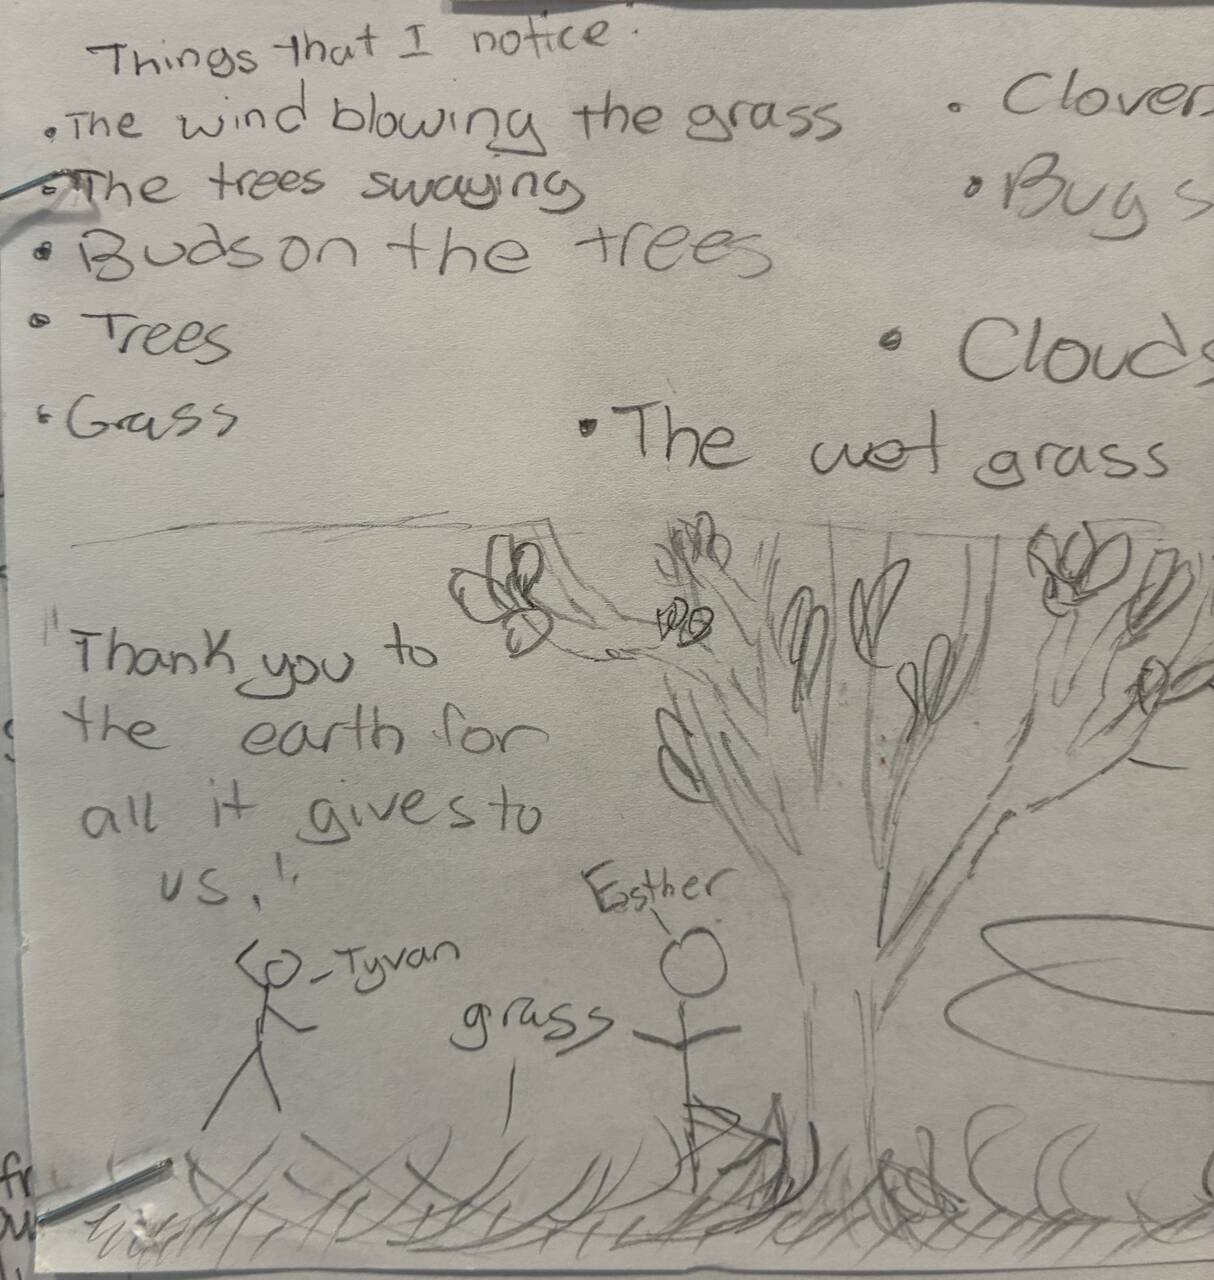 Things that I notice:
• The wind blowing the grass
• The trees swaying
• Buds on the trees
• Trees
• Grass
• Clover
• Bugs
• Clouds
• The wet grass
"Thank you to
the earth for
all it gives to
us."
Esther
Tyvan
grass